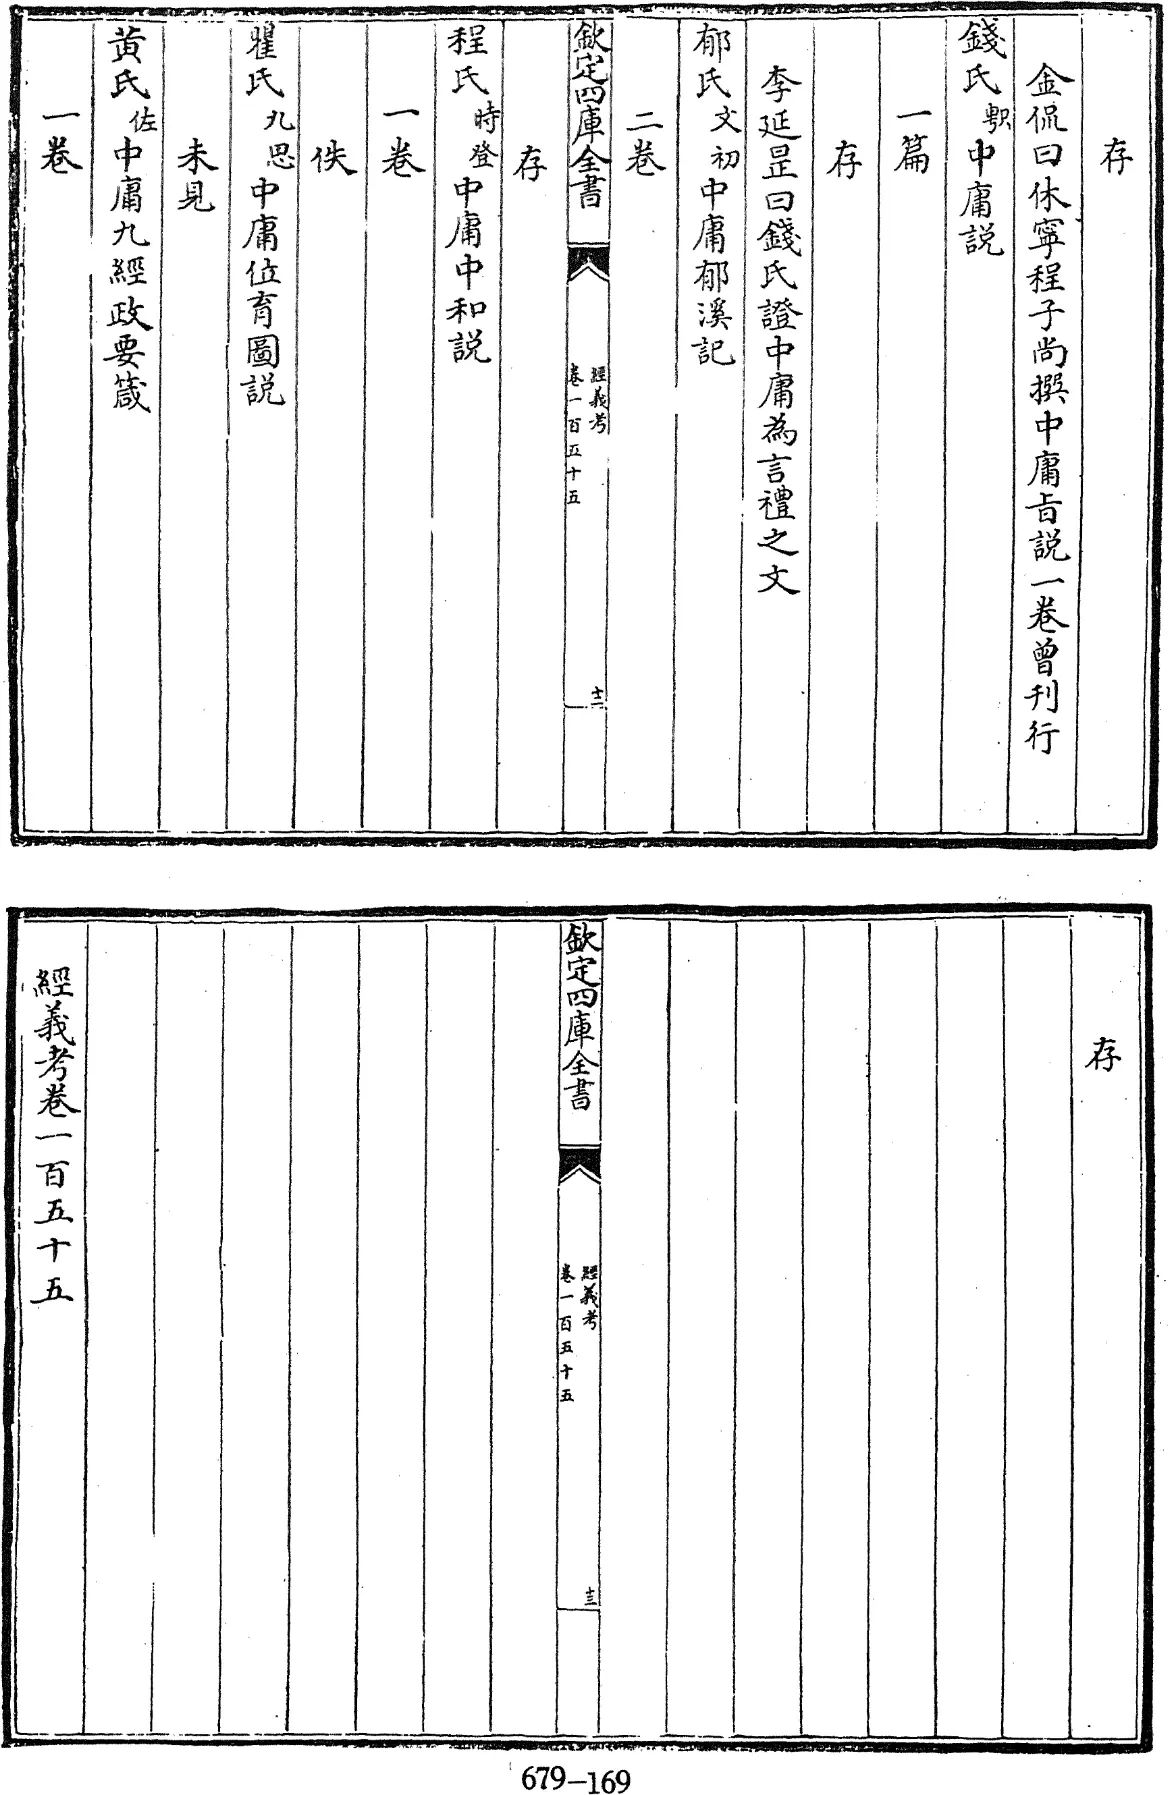 存
金侃曰休寧程子尚撰中庸㫖説一卷曾刊行
錢氏中庸説
一篇
存
李延昰曰錢氏證中庸為言禮之文
郁氏文初中庸郁溪記
二卷
欽定四庫全書
經義考
卷一百五十五
十二
存
程氏時登中庸中和説
一卷
佚
瞿氏九思中庸位育圖説
未見
黃氏佐中庸九經政要箴
一卷
存
欽定四庫全書
經義考
卷一百五十五
十三
經義考卷一百五十五
679-169